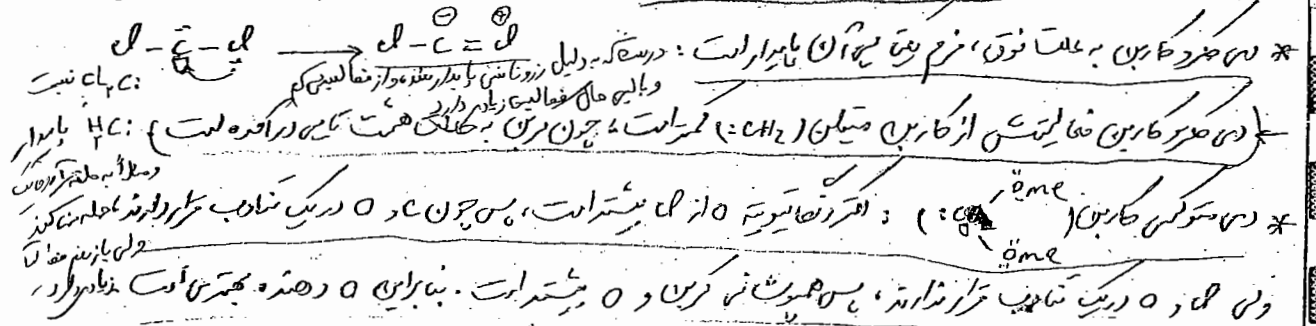 Cl - C̈ - Cl ⟶ Cl - C⊖ = Cl⊕
* دی کلرو کاربن به علت فوق، فرم یعنی آن پایدار است : درستکه به دلیل رزونانس پایدار شده و از فعالیتش کم
و با این حال فعالیت زیادی دارد
:CCl₂ نسبت
(دی کلرو کاربن فعالیتش از کاربن متیلن (:CH₂) کمتر است، چون کربن به حالت هشت تایی در آمده است) H₂C: پایدار
و مثلاً به حلقه آروماتیک
* دی متوکسی کاربن (:C öme öme) : الکترونگاتیویته o از Cl بیشتر است، پس چون c و o در یک تناوب قرار دارند، حمله نمی‌کند
ولی باز هم
ولی Cl و c در یک تناوب قرار ندارند، پس همپوشانی کربن و o بیشتر است. بنابراین o دهنده بهتری است زیادی دارد.